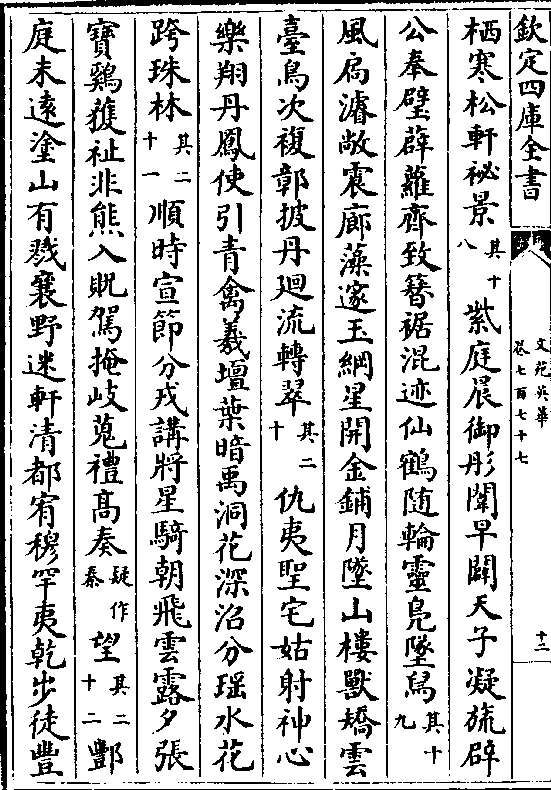 欽定四庫全書
文苑英華
卷七百七十七
十二
栖寒松軒祕景其十八紫庭晨御彤闈早闢天子凝旒辟
公奉璧薜蘿齊致簪裾混迹仙鶴随輪靈鳬墜舄其十九
風扃濬敞震廊藻邃玉綱星開金鋪月墜山樓獸矯雲
臺鳥次複彰披丹迴流轉翠其二十仇夷聖宅姑射神心
樂翔丹鳳使引青禽羲壇葉暗禹洞花深沼分瑶水花
跨珠林其二十一順時宣節分戎講將星騎朝飛雲露夕張
寶鷄薦祉非熊入貺駕掩岐蒐禮髙奏疑作秦望其二十二酆
庭未遠塗山有戮襄野迷軒清都宥穆罕夷乾步徒豐